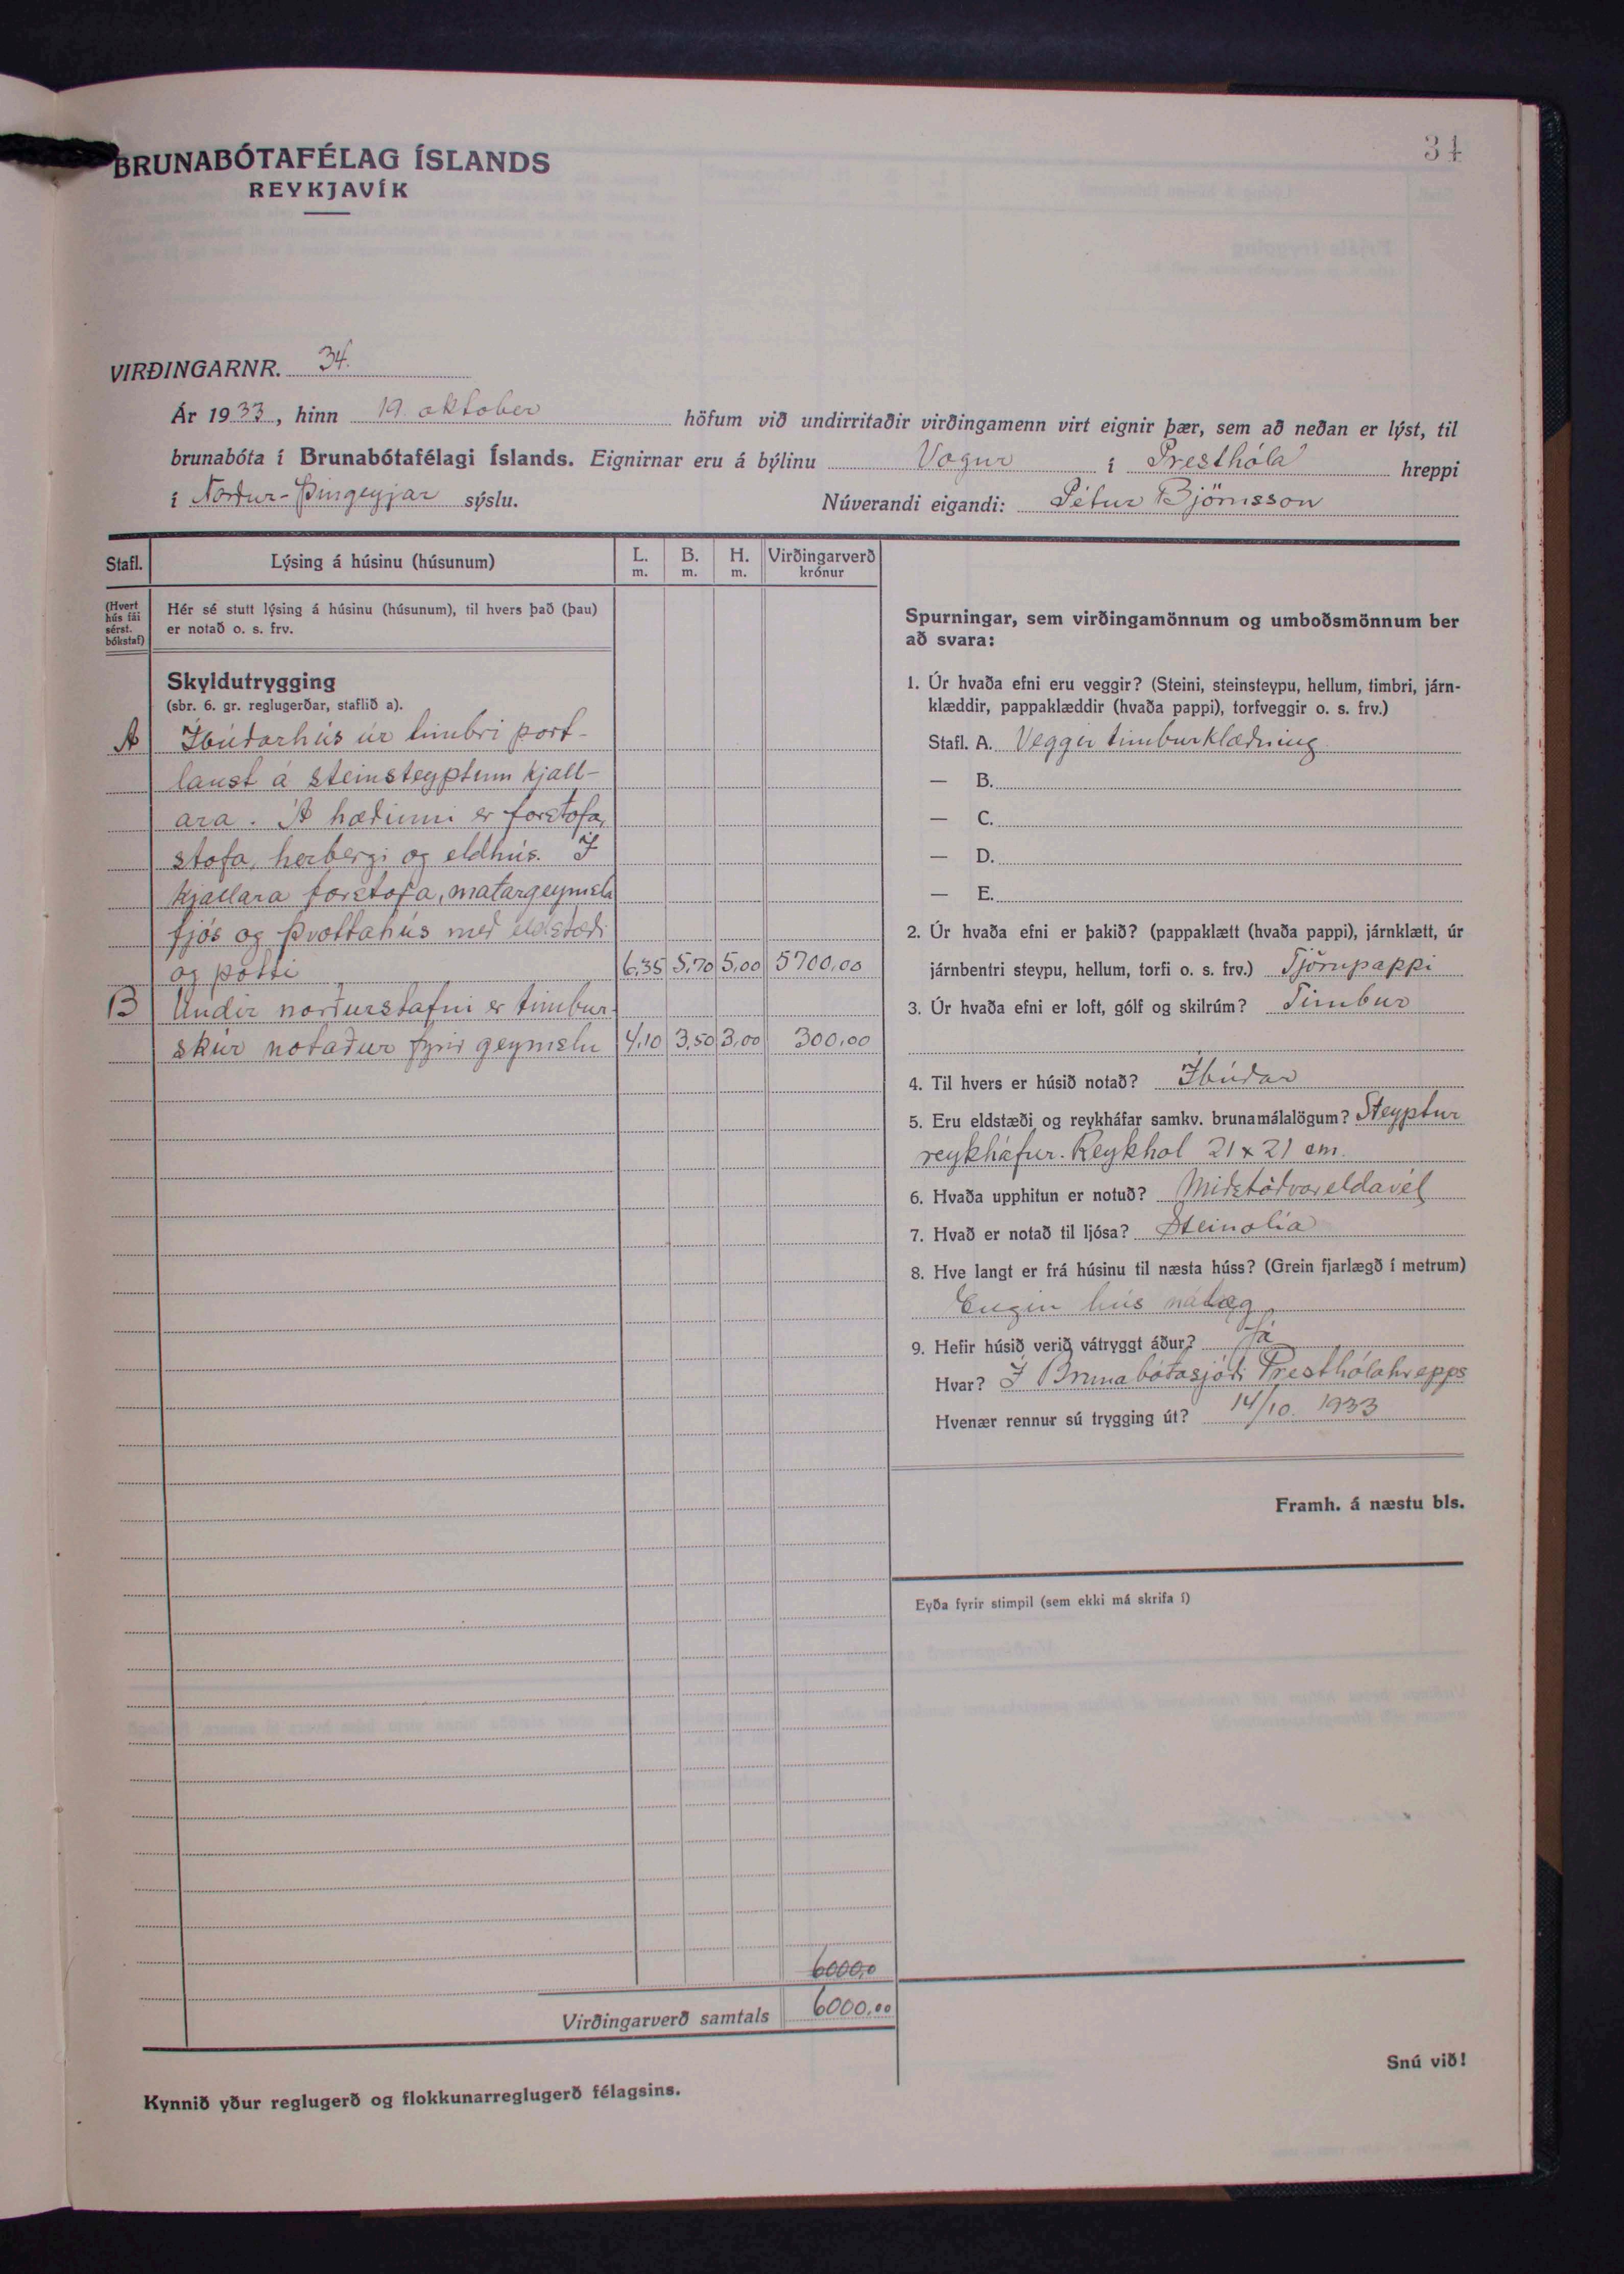 34
BRUNABÓTAFÉLAG ÍSLANDS
REYKJAVÍK
VIRÐINGARNR. 34.
Ár 1933, hinn 19. oktober höfum við undirritaðir virðingamenn virt eignir þær, sem að neðan er lýst, til
brunabóta í Brunabótafélagi Íslands. Eignirnar eru á býlinu Vogur í Presthóla hreppi
í Norður-Þingeyjar sýslu. Núverandi eigandi: Pétur Björnsson
Stafl. Lýsing á húsinu (húsunum) L. m. B. m. H. m. Virðingarverð krónur
(Hvert hús fái sérst. bókstaf)
Hér sé stutt lýsing á húsinu (húsunum), til hvers það (þau)
er notað o. s. frv.
Skyldutrygging
(sbr. 6. gr. reglugerðar, staflið a).
A Íbúðarhús úr timbri port-
laust á steinsteyptum kjall-
ara. Á hæðinni er forstofa,
stofa, herbergi og eldhús. Í
kjallara forstofa, matargeymsla
fjós og þvottahús með eldstæði
og potti 6,35 5,70 5,00 5700,00
B Undir norðurstafni er timbur-
skúr notaður fyrir geymslu 4,10 3,50 3,00 300,00
6000,0
Virðingarverð samtals 6000,00
Kynnið yður reglugerð og flokkunarreglugerð félagsins.
Spurningar, sem virðingamönnum og umboðsmönnum ber
að svara:
1. Úr hvaða efni eru veggir? (Steini, steinsteypu, hellum, timbri, járn-
klæddir, pappaklæddir (hvaða pappi), torfveggir o. s. frv.)
Stafl. A. Veggir timburklæðning
— B.
— C.
— D.
— E.
2. Úr hvaða efni er þakið? (pappaklætt (hvaða pappi), járnklætt, úr
járnbentri steypu, hellum, torfi o. s. frv.) Tjörupappi
3. Úr hvaða efni er loft, gólf og skilrúm? Timbur
4. Til hvers er húsið notað? Íbúðar
5. Eru eldstæði og reykháfar samkv. brunamálalögum? Steyptur
reykháfur. Reykhol 21 x 21 cm.
6. Hvaða upphitun er notuð? Miðstöðvareldavél
7. Hvað er notað til ljósa? Steinolía
8. Hve langt er frá húsinu til næsta húss? (Grein fjarlægð í metrum)
Engin hús nálæg
9. Hefir húsið verið vátryggt áður? Já
Hvar? Í Brunabótasjóði Presthólahrepps
Hvenær rennur sú trygging út? 14/10. 1933
Framh. á næstu bls.
Eyða fyrir stimpil (sem ekki má skrifa í)
Snú við!